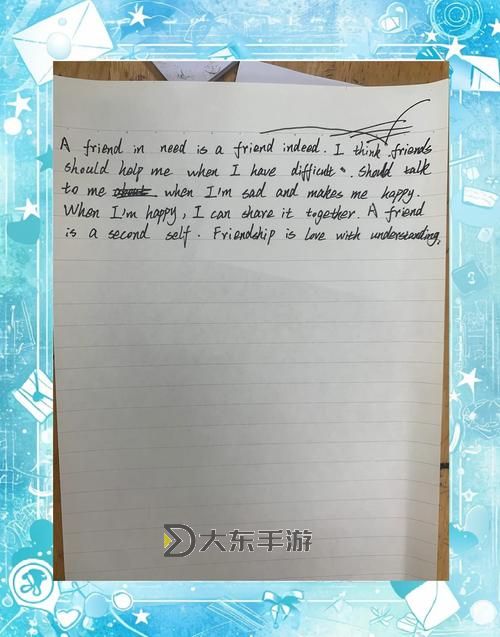 A friend in need is a friend indeed. I think friends
should help me when I have difficult. Should talk
to me when I'm sad and makes me happy.
When I'm happy, I can share it together. A friend
is a second self. Friendship is love with understanding.
大东手游